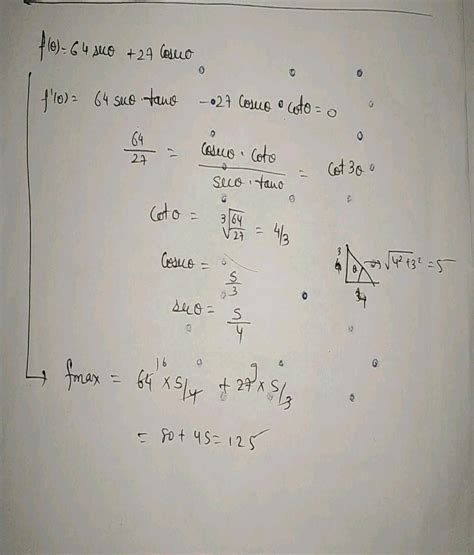 f(θ) = 64 secθ + 27 cosecθ
f'(θ) = 64 secθ · tanθ - 27 cosecθ · cotθ = 0
64/27 = (cosecθ · cotθ)/(secθ · tanθ) = cot³θ
cotθ = ∛(64/27) = 4/3
cosecθ = 5/3
3 θ 4 ⇒ √4²+3² = 5
secθ = 5/4
fmax = 64 16 × 5/4 + 27 9 × 5/3
= 80 + 45 = 125